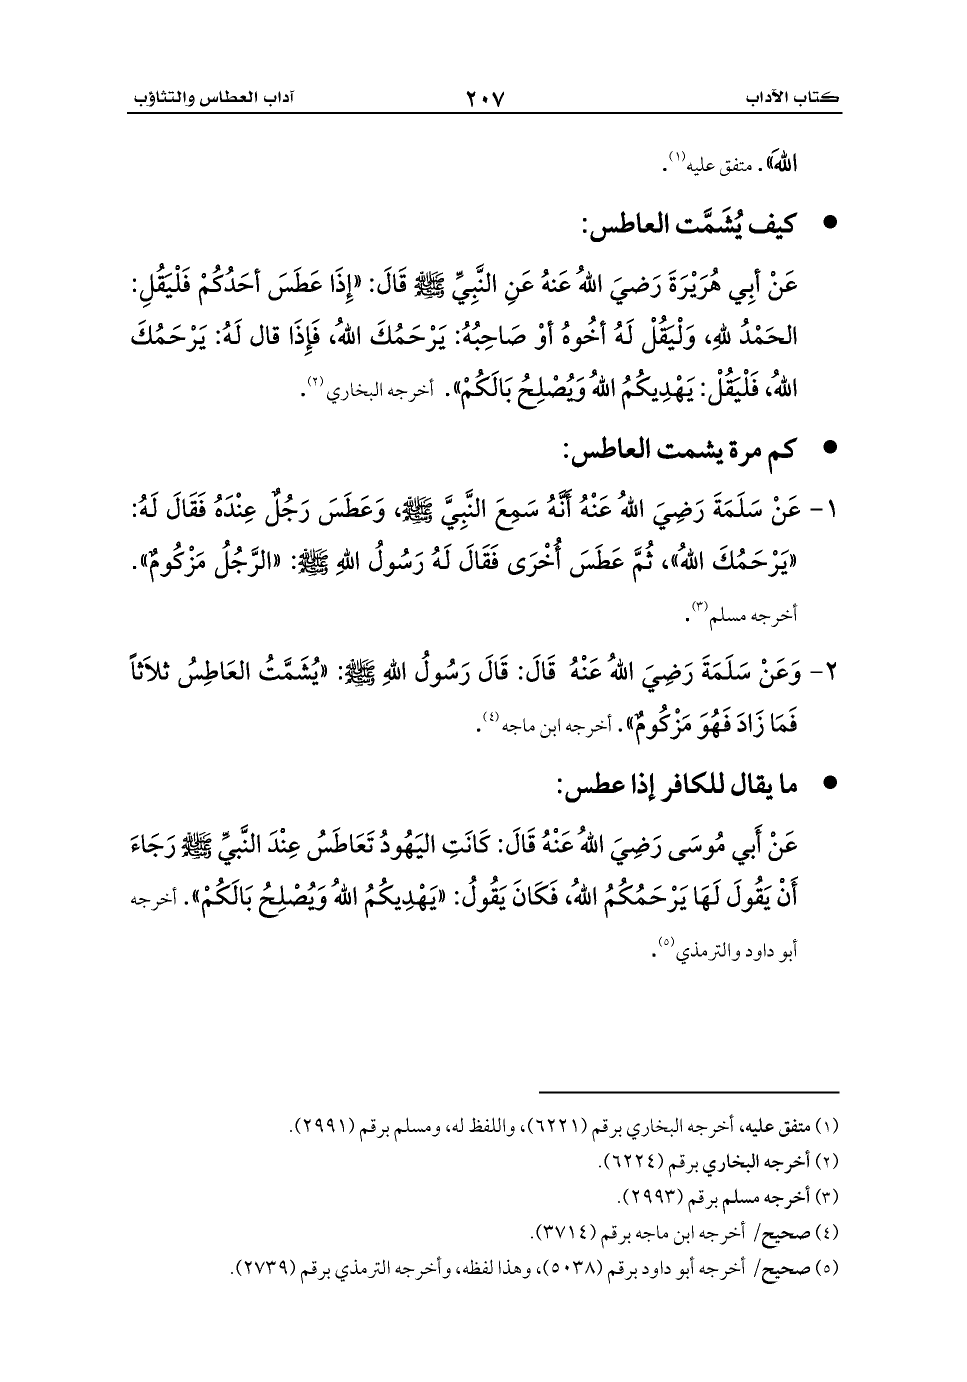 كتاب الآداب ٢٠٧ آداب العطاس والتثاؤب
اللهَ». متفق عليه(١).
● كيف يُشَمَّت العاطس:
عَنْ أبِي هُرَيْرَةَ رَضيَ اللهُ عَنهُ عَنِ النَّبِيِّ ﷺ قَالَ: «إِذَا عَطَسَ أحَدُكُمْ فَلْيَقُلِ:
الحَمْدُ للهِ، وَلْيَقُلْ لَهُ أخُوهُ أوْ صَاحِبُهُ: يَرْحَمُكَ اللهُ، فَإِذَا قال لَهُ: يَرْحَمُكَ
اللهُ، فَلْيَقُلْ: يَهْدِيكُمُ اللهُ وَيُصْلِحُ بَالَكُمْ». أخرجه البخاري(٢).
● كم مرة يشمت العاطس:
١- عَنْ سَلَمَةَ رَضِيَ اللهُ عَنْهُ أَنَّهُ سَمِعَ النَّبِيَّ ﷺ، وَعَطَسَ رَجُلٌ عِنْدَهُ فَقَالَ لَهُ:
«يَرْحَمُكَ اللهُ»، ثُمَّ عَطَسَ أُخْرَى فَقَالَ لَهُ رَسُولُ اللهِ ﷺ: «الرَّجُلُ مَزْكُومٌ».
أخرجه مسلم(٣).
٢- وَعَنْ سَلَمَةَ رَضِيَ اللهُ عَنْهُ قَالَ: قَالَ رَسُولُ اللهِ ﷺ: «يُشَمَّتُ العَاطِسُ ثلاَثاً
فَمَا زَادَ فَهُوَ مَزْكُومٌ». أخرجه ابن ماجه(٤).
● ما يقال للكافر إذا عطس:
عَنْ أَبي مُوسَى رَضِيَ اللهُ عَنْهُ قَالَ: كَانَتِ اليَهُودُ تَعَاطَسُ عِنْدَ النَّبيِّ ﷺ رَجَاءَ
أَنْ يَقُولَ لَهَا يَرْحَمُكُمُ اللهُ، فَكَانَ يَقُولُ: «يَهْدِيكُمُ اللهُ وَيُصْلِحُ بَالَكُمْ». أخرجه
أبو داود والترمذي(٥).
(١) متفق عليه، أخرجه البخاري برقم (٦٢٢١)، واللفظ له، ومسلم برقم (٢٩٩١).
(٢) أخرجه البخاري برقم (٦٢٢٤).
(٣) أخرجه مسلم برقم (٢٩٩٣).
(٤) صحيح/ أخرجه ابن ماجه برقم (٣٧١٤).
(٥) صحيح/ أخرجه أبو داود برقم (٥٠٣٨)، وهذا لفظه، وأخرجه الترمذي برقم (٢٧٣٩).